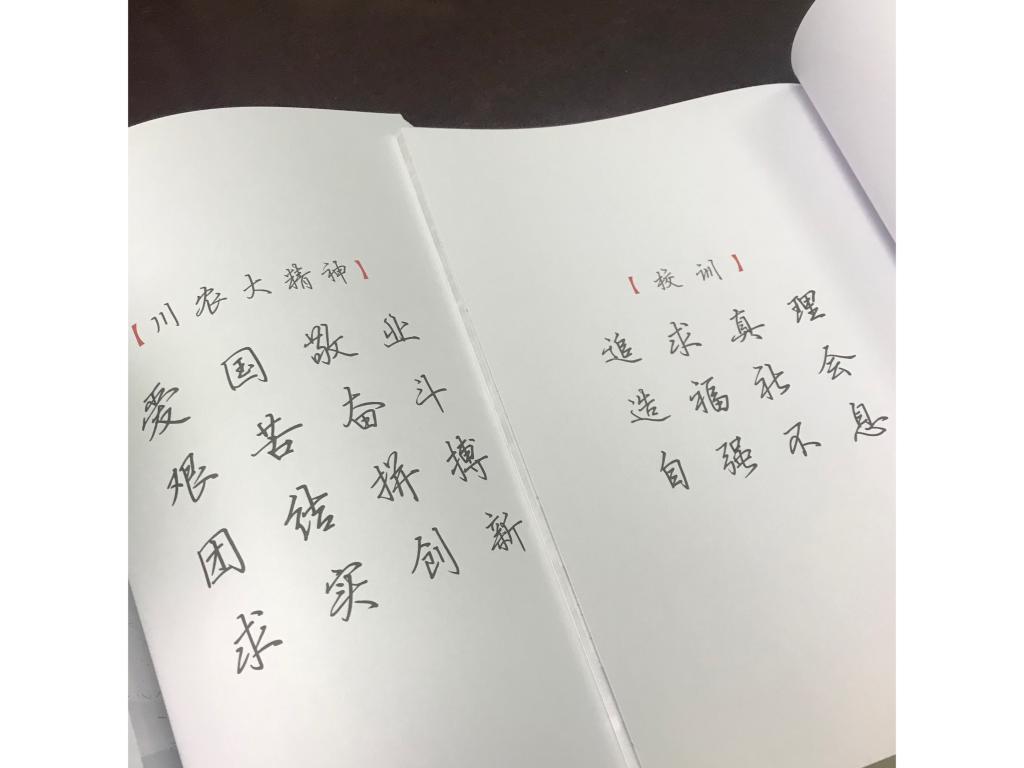 【川农大精神】
爱国敬业
艰苦奋斗
团结拼搏
求实创新
【校训】
追求真理
造福社会
自强不息